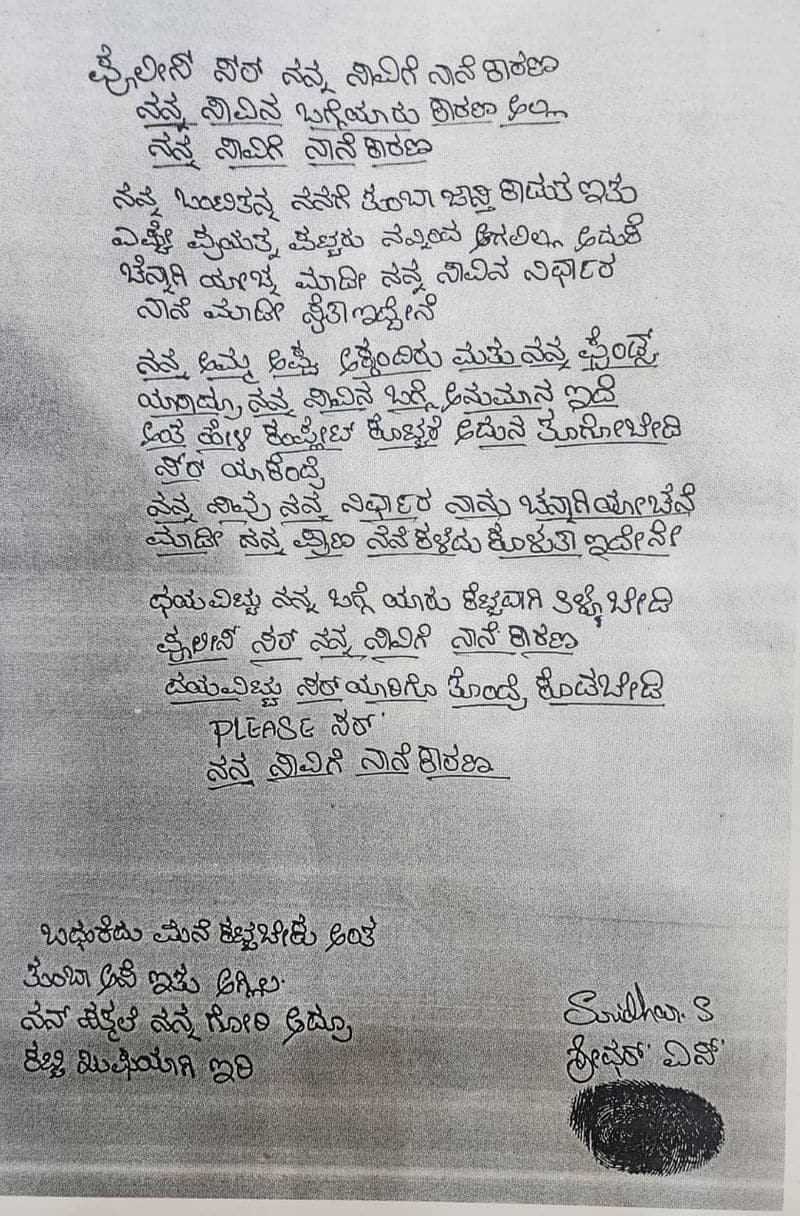 ಪ್ಲೀಸ್ ಸರ್ ನನ್ನ ಸಾವಿಗೆ ನಾನೆ ಕಾರಣ
ನನ್ನ ಸಾವಿನ ಬಗ್ಗೆ ಯಾರು ಕಾರಣ ಅಲ್ಲ
ನನ್ನ ಸಾವಿಗೆ ನಾನೆ ಕಾರಣ
ನನ್ನ ಒಂಟಿತನ್ನ ನನಗೆ ತುಂಬಾ ಕಾಡುತ ಇತು
ಎಷ್ಟೇ ಪ್ರಯತ್ನ ಪಟ್ಟರು ನನ್ನಿಂದ ಆಗಲಿಲ್ಲ ಅದುಕೆ
ಚೆನ್ನಾಗಿ ಯೋಚ್ನ ಮಾಡೀ ನನ್ನ ಸಾವಿನ ನಿರ್ಧಾರ
ನಾನೆ ಮಾಡೀ
ನನ್ನ ಅಮ್ಮ ಅಪ್ಪ ಅಕ್ಕಂದಿರು ಮತು ನನ್ನ ಫ್ರೆಂಡ್ಸ್
ಯಾರಾದ್ರೂ ನನ್ನ ಸಾವಿನ ಬಗ್ಗೆ ಅನುಮಾನ ಇದೆ
ಅಂತ ಹೇಳಿ ಕಂಪ್ಲೇಟ್ ಕೊಟ್ಟರೆ ಅದುನ ತಗೋಬೇಡಿ
ಸರ್ ಯಾಕಂದ್ರೆ
ನನ್ನ ಸಾವು ನನ್ನ ನಿರ್ಧಾರ ನಾನು ಚನ್ನಾಗಿ ಯೋಚನೆ
ಮಾಡೀ ನನ್ನ ಪ್ರಾಣ ನೆನೆ ಕಳೆದು ಕೊಳುತಾ ಇದೇನೇ
ಧಯವಿಟ್ಟು ನನ್ನ ಬಗ್ಗೆ ಯಾರು ಕೆಟ್ಟವಾಗಿ ತಿಳ್ಕೊಬೇಡಿ
ಪ್ಲೀಸ್ ಸರ್ ನನ್ನ ಸಾವಿಗೆ ನಾನೆ ಕಾರಣ
ದಯವಿಟ್ಟು ಸರ್ ಯಾರಿಗೂ ತೊಂದ್ರೆ ಕೊಡಬೇಡಿ
PLEASE ಸರ್
ನನ್ನ ಸಾವಿಗೆ ನಾನೆ ಕಾರಣ
ಬಧುಕಿದು ಮನೆ ಕಟ್ಟಬೇಕು ಅಂತ
ತುಂಬಾ ಆಸೆ ಇತು ಆಗ್ಲಿಲ.
ನನ್ ನನ್ನ ಗೋರಿ ಆದ್ರೂ
ಕಟ್ಟಿ ಖುಷಿಯಾಗಿ ಇರಿ
S
ಶ್ರೀಧರ್ ಎಸ್